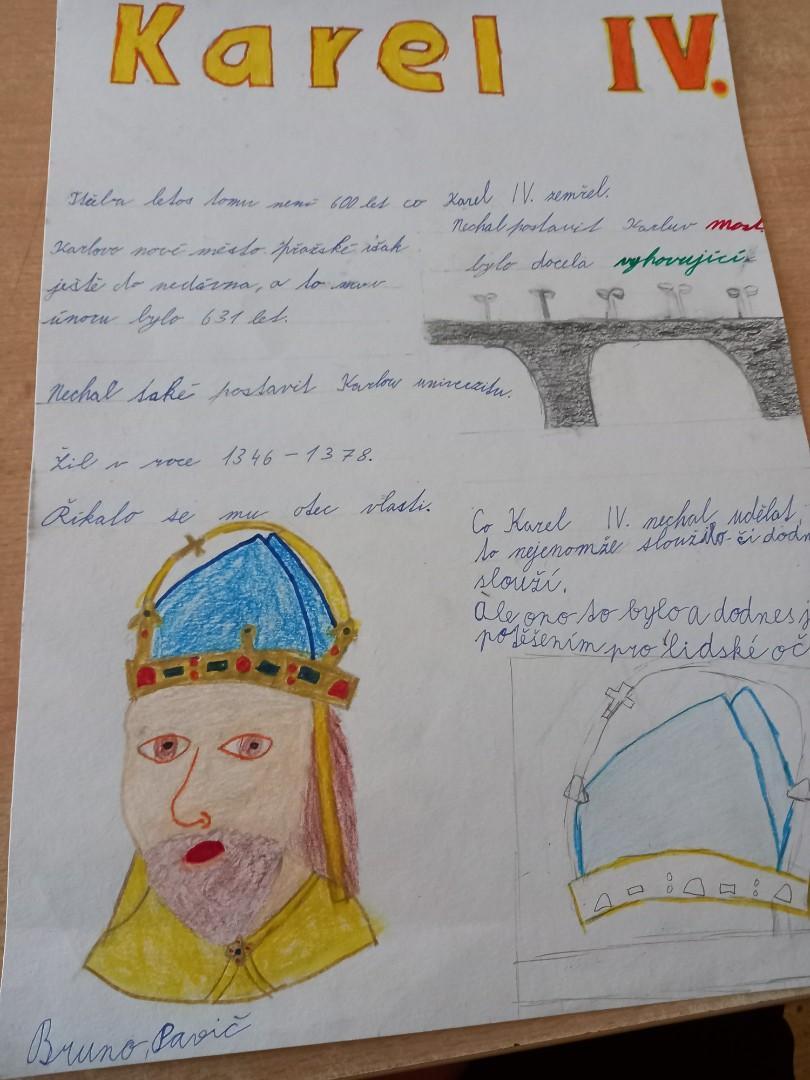 Karel IV.
letos tomu není 600 let co Karel IV. zemřel.
Nechal postavit Karluv most,
bylo docela vyhovující
Karlovo nové město pražské však
ještě do nedávna, a to
únoru bylo 631 let.
Nechal také postavit Karlovu univerzitu.
Žil v roce 1346 - 1378.
Říkalo se mu otec vlasti.
Co Karel IV. nechal udělat,
to nejenomže sloužilo či dodn
slouží.
Ale ono to bylo a dodnes j
potěšením pro lidské oč
Bruno, Pavič